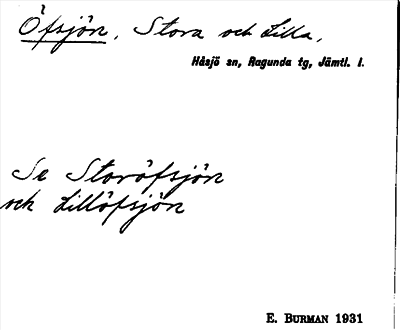 Öfsjön, Stora och Lilla,
Håsjö sn, Ragunda tg, Jämtl. l.
Se Storöfsjön
och Lillöfsjön
E. BURMAN 1931